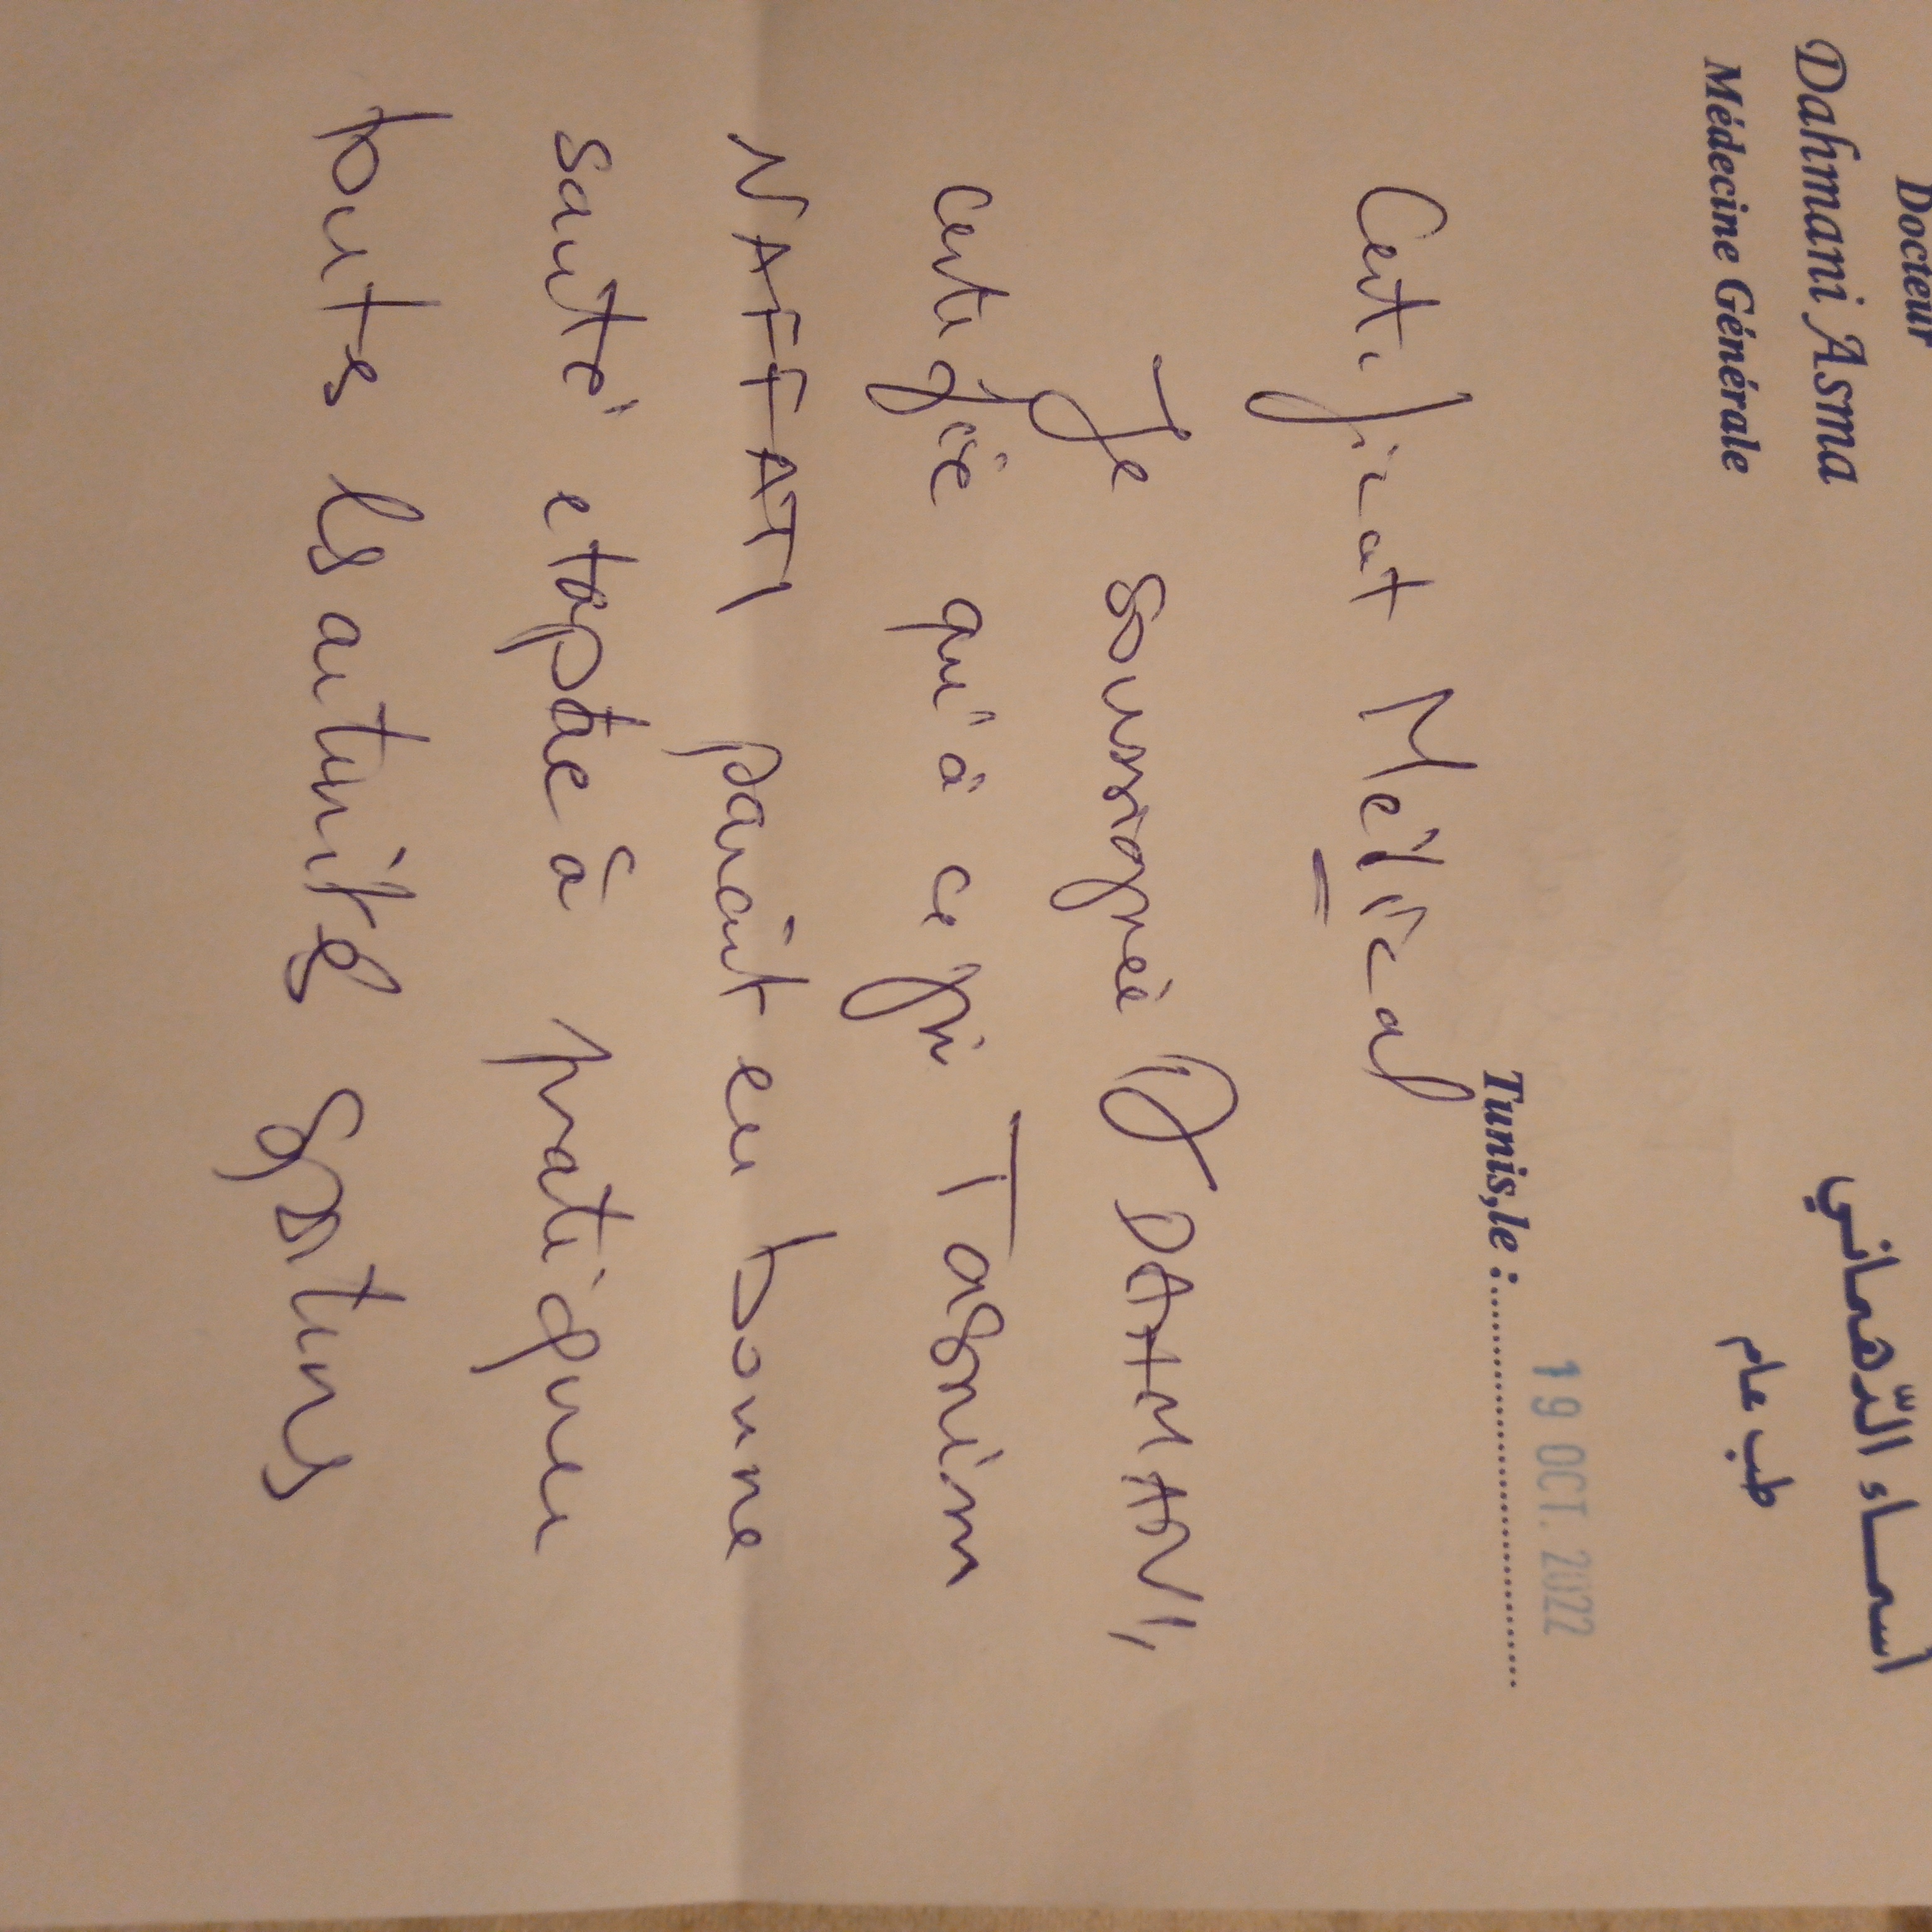 Docteur
Dahmani Asma
Médecine Générale
أسماء الدّهماني
طب عام
19 OCT. 2022
Tunis,le :
Certificat Médical
Je soussignée Dr DAHMANI,
certifie qu'à ce jour Tasnim
NAFFATI parait en bonne
santé et apte à pratiquer
toutes les activités sportives